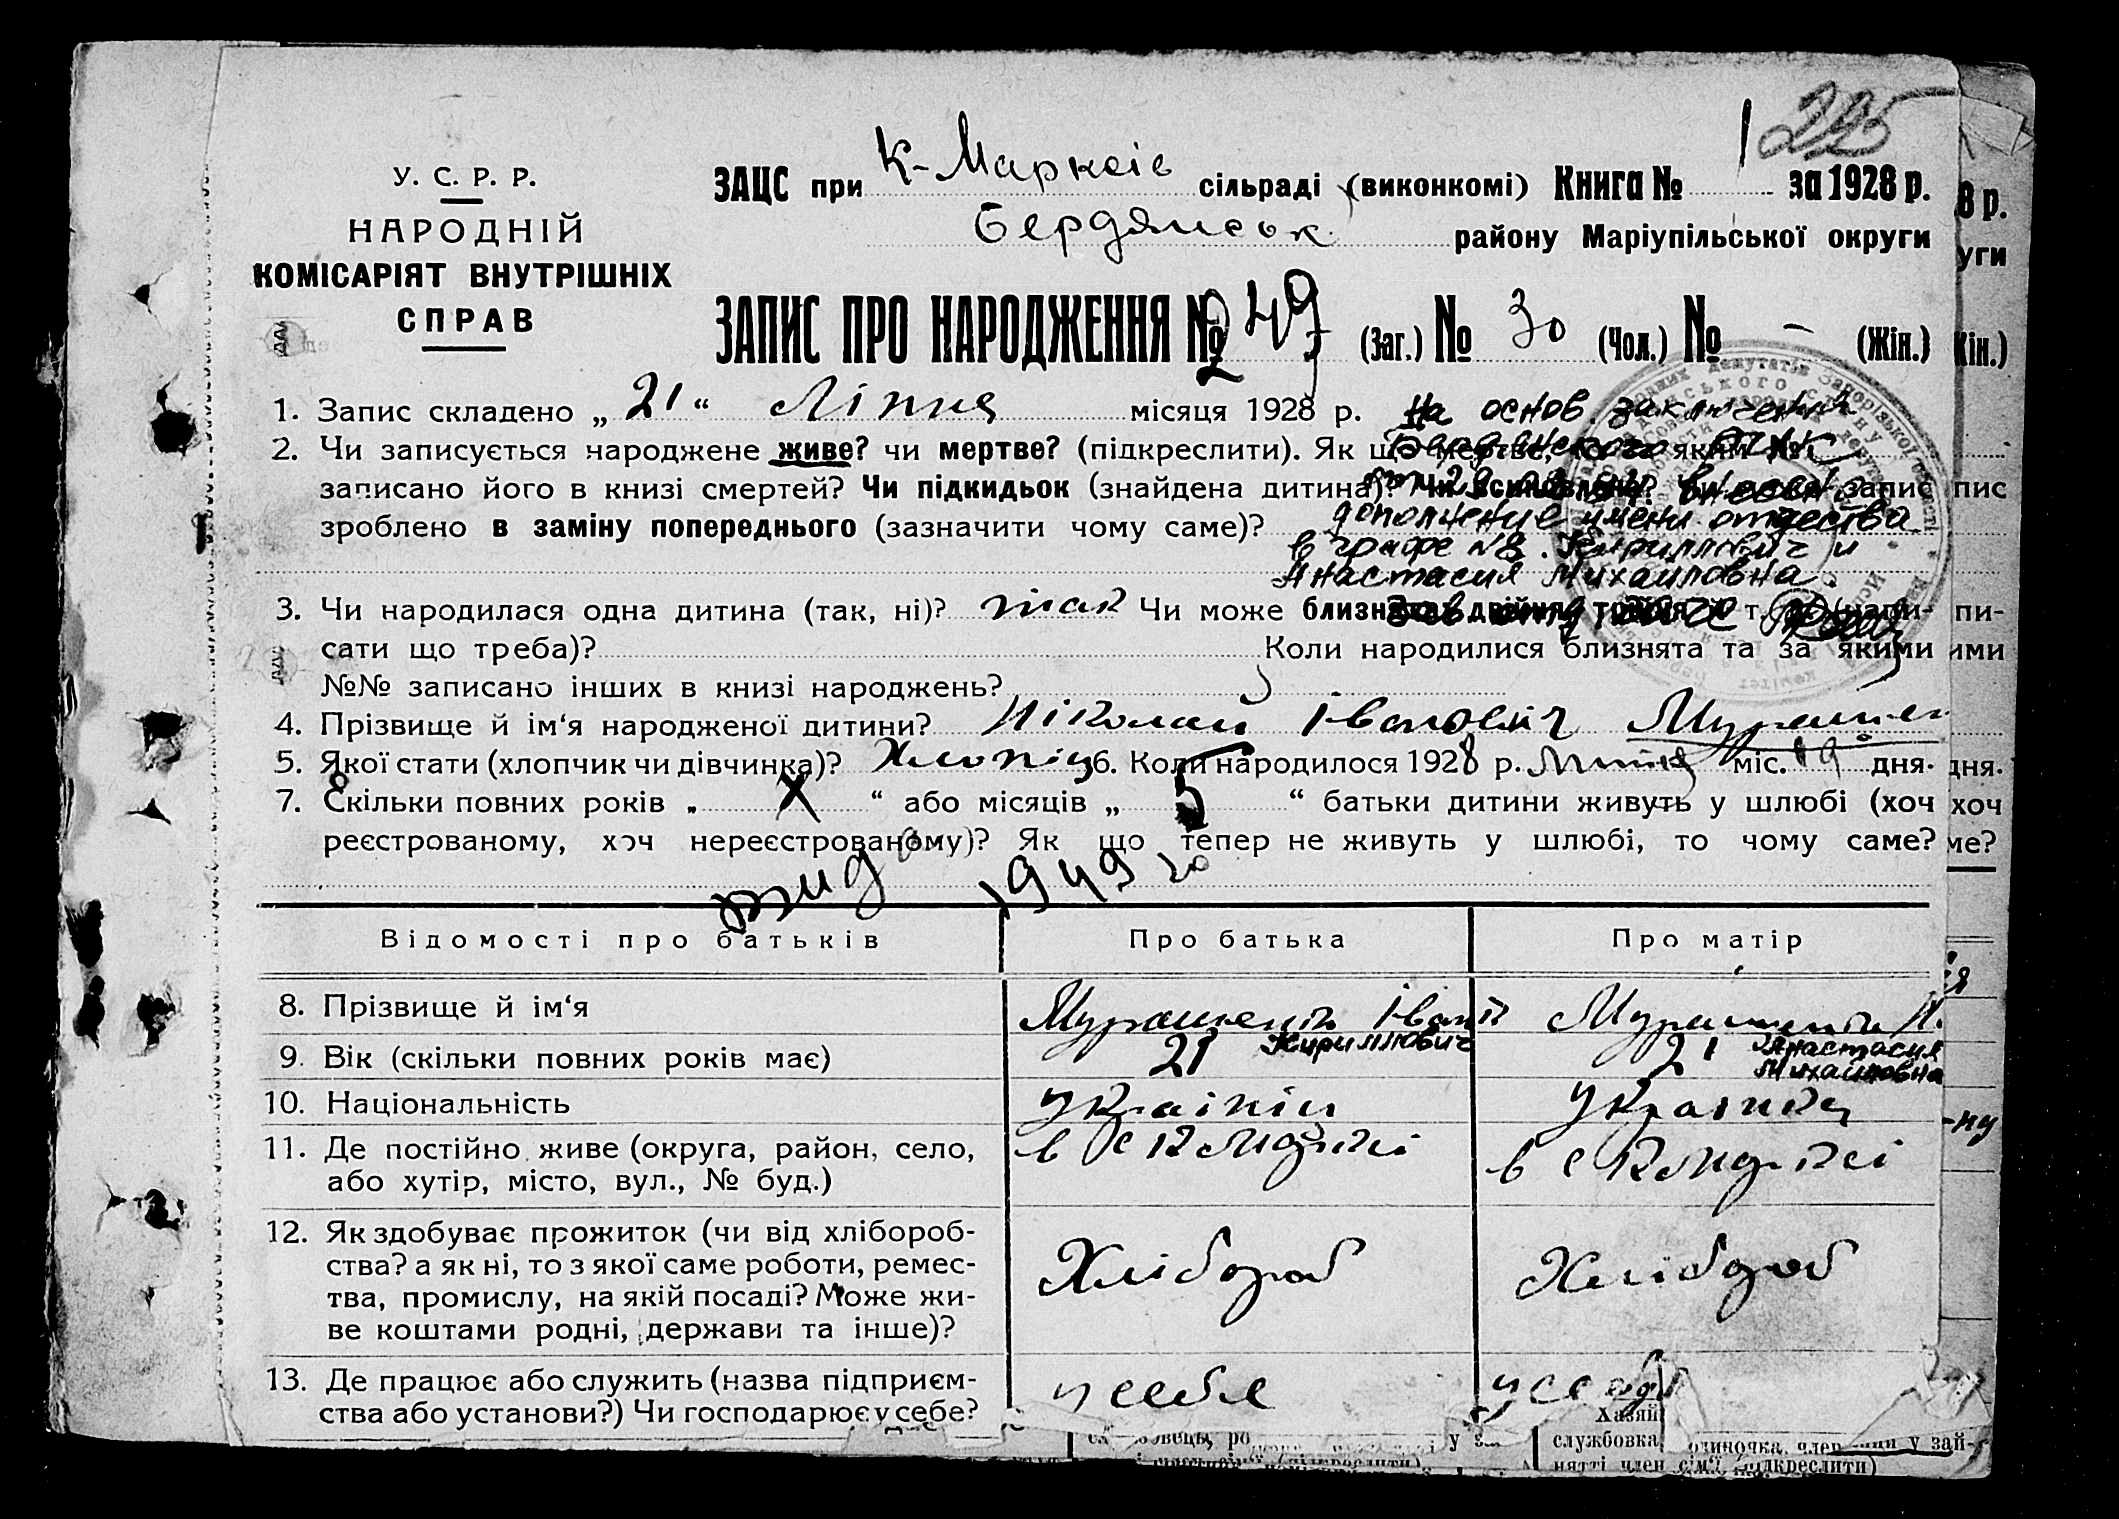 225
У. С. Р. Р.
НАРОДНІЙ
КОМІСАРІЯТ ВНУТРІШНІХ
СПРАВ
ЗАЦС при К-Марксів сільраді (виконкомі) Книга № 1 за 1928 р.
Бердянськ району Маріупільської округи
ЗАПИС ПРО НАРОДЖЕННЯ № 249 (Заг.) № 30 (Чол.) № – (Жін.)
1. Запис складено „ 21 “ Ліпня місяця 1928 р.
На основ заключения
2. Чи записується народжене живе? чи мертве? (підкреслити). Як що мертве, то за яким №
записано його в книзі смертей? Чи підкидьок (знайдена дитина)? Чи запис
зроблено в заміну попереднього (зазначити чому саме)?
дополнение имени отчества
в графе №8. Кириллович и
Анастасия Михайловна.
3. Чи народилася одна дитина (так, ні)? так Чи може близнята, двійня, тройня й т. (напи-
сати що треба)? Коли народилися близнята та за якими
№№ записано інших в книзі народжень?
4. Прізвище й ім‘я народженої дитини? Ніколай Іванович
5. Якої стати (хлопчик чи дівчинка)? Хлопіць 6. Коли народилося 1928 р. Липня міс. 19 дня.
7. Скільки повних років „ Х “ або місяців „ 5 “ батьки дитини живуть у шлюбі (хоч
реєстрованому, хоч нереєстрованому)? Як що тепер не живуть у шлюбі, то чому саме?
1949
Відомості про батьків Про батька Про матір
8. Прізвище й ім‘я Мурашенко Іван Мурашенко А.
Кириллович Анастасия
Михайловна
9. Вік (скільки повних років має) 21 21
10. Національність Українець Українка
11. Де постійно живе (округа, район, село,
або хутір, місто, вул., № буд.)
12. Як здобуває прожиток (чи від хлібороб-
ства? а як ні, то з якої саме роботи, ремес-
тва, промислу, на якій посаді? Може жи-
ве коштами родні, держави та інше)?
Хлібороб Хлібороб
13. Де працює або служить (назва підприєм-
ства або установи?) Чи господарює у себе?
у себе у себе
службовка, одиночка, член у зай-
нятті член сім‘ї (підкреслити)
8 р.
уги
Кін.)
пис
пи-
ими
дня.
хоч
ме?